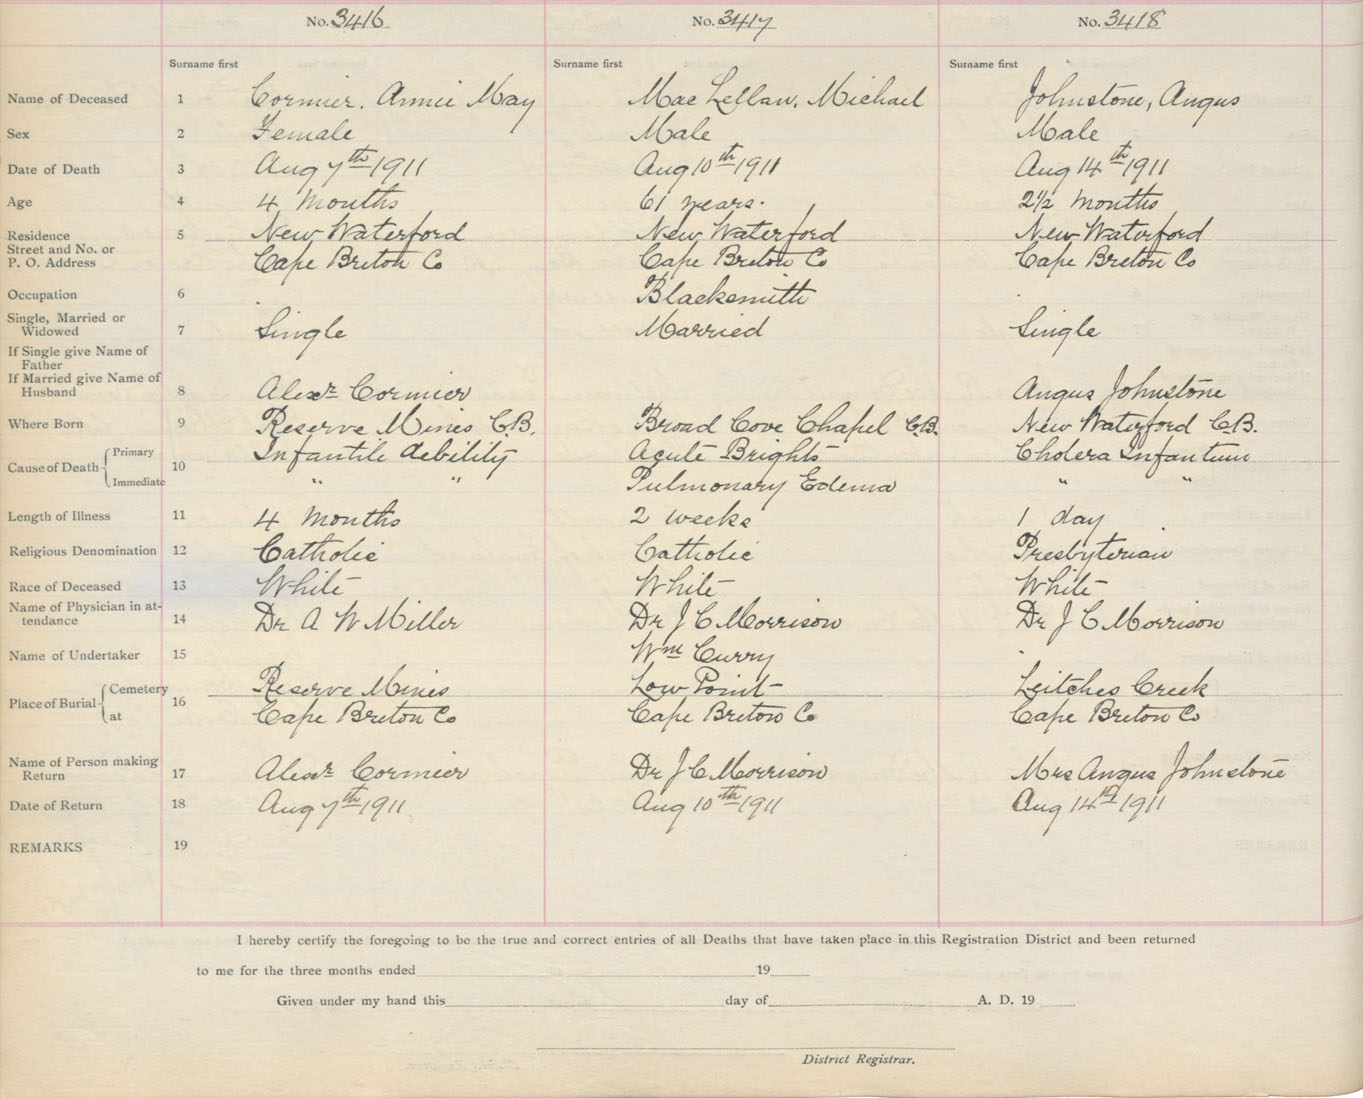 No. 3416 No. 3417 No. 3418
Surname first Surname first Surname first
Name of Deceased 1 Cormier, Annie May Mac Lellan, Michael Johnstone, Angus
Sex 2 Female Male Male
Date of Death 3 Aug 7th 1911 Aug 10th 1911 Aug 14th 1911
Age 4 4 Months 61 years. 2½ Months
Residence 5 New Waterford New Waterford New Waterford
Street and No. or
P. O. Address Cape Breton Co Cape Breton Co Cape Breton Co
Occupation 6 Blacksmith
Single, Married or
Widowed 7 Single Married Single
If Single give Name of
Father
If Married give Name of
Husband 8 Alexr Cormier Angus Johnstone
Where Born 9 Reserve Mines C.B. Broad Cove Chapel C.B. New Waterford C.B.
Cause of Death 10 Primary Infantile debility Acute Brights Cholera Infantum
Immediate " " Pulmonary Edema " "
Length of Illness 11 4 Months 2 weeks 1 day
Religious Denomination 12 Catholic Catholic Presbyterian
Race of Deceased 13 White White White
Name of Physician in at-
tendance 14 Dr A W Miller Dr J C Morrison Dr J C Morrison
Name of Undertaker 15 Wm Curry
Place of Burial 16 Cemetery Reserve Mines Low Point Leitches Creek
at Cape Breton Co Cape Breton Co Cape Breton Co
Name of Person making
Return 17 Alexr Cormier Dr J C Morrison Mrs Angus Johnstone
Date of Return 18 Aug 7th 1911 Aug 10th 1911 Aug 14th 1911
REMARKS 19
I hereby certify the foregoing to be the true and correct entries of all Deaths that have taken place in this Registration District and been returned
to me for the three months ended 19
Given under my hand this day of A. D. 19
District Registrar.